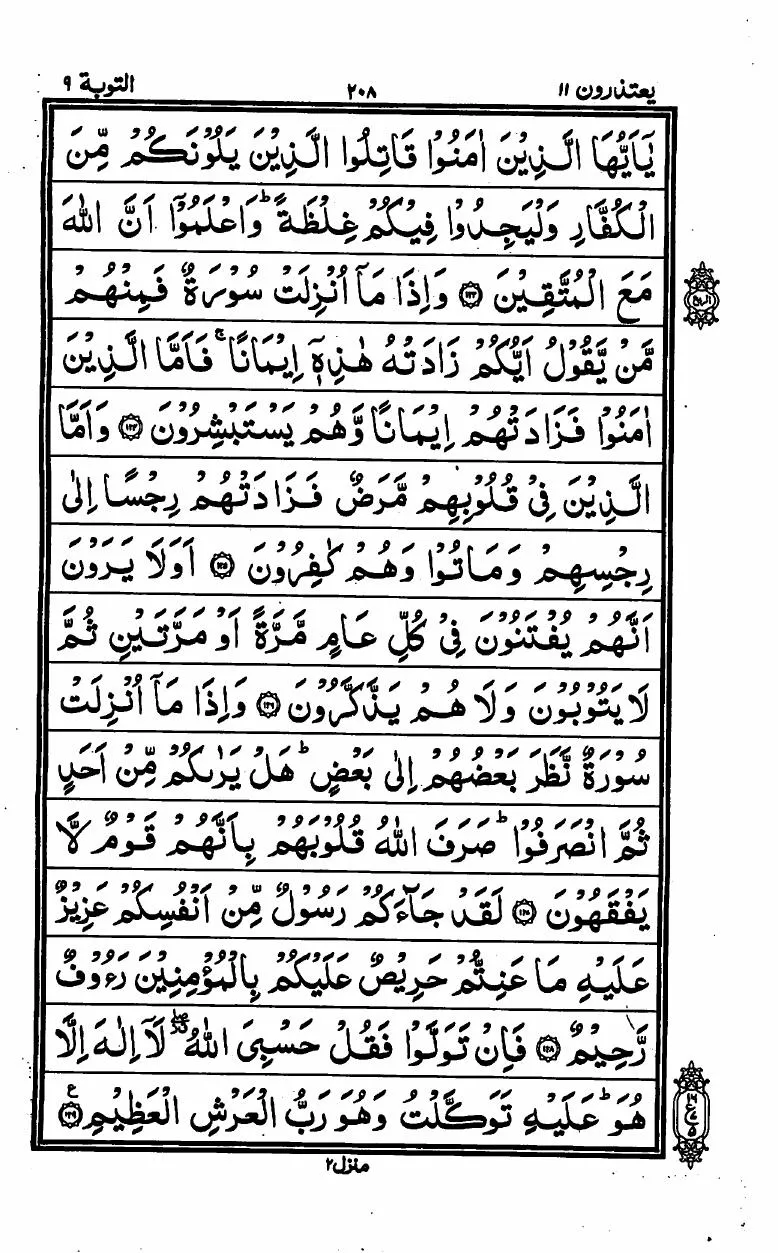 يعتذرون ١١ ٢٠٨ التوبة ٩
يٰۤاَيُّهَا الَّذِيْنَ اٰمَنُوْا قَاتِلُوا الَّذِيْنَ يَلُوْنَكُمْ مِّنَ
الْكُفَّارِ وَلْيَجِدُوْا فِيْكُمْ غِلْظَةً ؕ وَاعْلَمُوْۤا اَنَّ اللّٰهَ
مَعَ الْمُتَّقِيْنَ ﴿۱۲۳﴾ وَاِذَا مَاۤ اُنْزِلَتْ سُوْرَةٌ فَمِنْهُمْ
مَّنْ يَّقُوْلُ اَيُّكُمْ زَادَتْهُ هٰذِهٖۤ اِيْمَانًا ۚ فَاَمَّا الَّذِيْنَ
اٰمَنُوْا فَزَادَتْهُمْ اِيْمَانًا وَّهُمْ يَسْتَبْشِرُوْنَ ﴿۱۲۴﴾ وَاَمَّا
الَّذِيْنَ فِيْ قُلُوْبِهِمْ مَّرَضٌ فَزَادَتْهُمْ رِجْسًا اِلٰى
رِجْسِهِمْ وَمَاتُوْا وَهُمْ كٰفِرُوْنَ ﴿۱۲۵﴾ اَوَلَا يَرَوْنَ
اَنَّهُمْ يُفْتَنُوْنَ فِيْ كُلِّ عَامٍ مَّرَّةً اَوْ مَرَّتَيْنِ ثُمَّ
لَا يَتُوْبُوْنَ وَلَا هُمْ يَذَّكَّرُوْنَ ﴿۱۲۶﴾ وَاِذَا مَاۤ اُنْزِلَتْ
سُوْرَةٌ نَّظَرَ بَعْضُهُمْ اِلٰى بَعْضٍ ؕ هَلْ يَرٰىكُمْ مِّنْ اَحَدٍ
ثُمَّ انْصَرَفُوْا ؕ صَرَفَ اللّٰهُ قُلُوْبَهُمْ بِاَنَّهُمْ قَوْمٌ لَّا
يَفْقَهُوْنَ ﴿۱۲۷﴾ لَقَدْ جَآءَكُمْ رَسُوْلٌ مِّنْ اَنْفُسِكُمْ عَزِيْزٌ
عَلَيْهِ مَا عَنِتُّمْ حَرِيْصٌ عَلَيْكُمْ بِالْمُؤْمِنِيْنَ رَءُوْفٌ
رَّحِيْمٌ ﴿۱۲۸﴾ فَاِنْ تَوَلَّوْا فَقُلْ حَسْبِيَ اللّٰهُ لَاۤ اِلٰهَ اِلَّا
هُوَ ؕ عَلَيْهِ تَوَكَّلْتُ وَهُوَ رَبُّ الْعَرْشِ الْعَظِيْمِ ﴿۱۲۹﴾ ع
منزل ٢